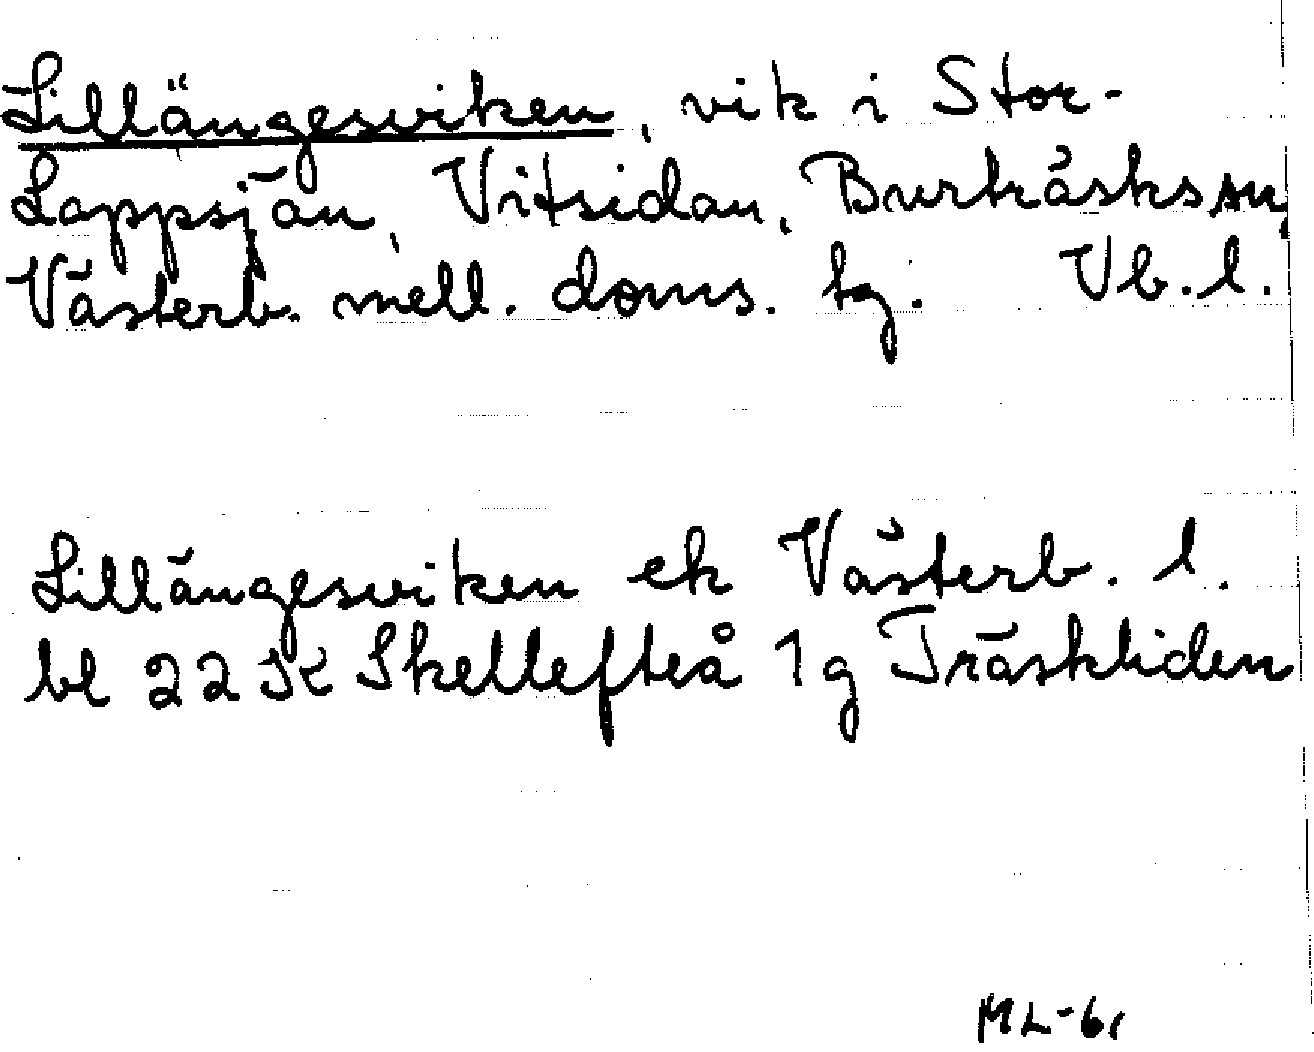 Lillängesviken, vik i Stor-
Lappsjön, Vitsidan, Burträsks sn,
Västerb. mell. doms. tg. Vb. l.
Lillängesviken ek Västerb. l.
bl 22 K Skellefteå 1 g Träskliden
ML-61